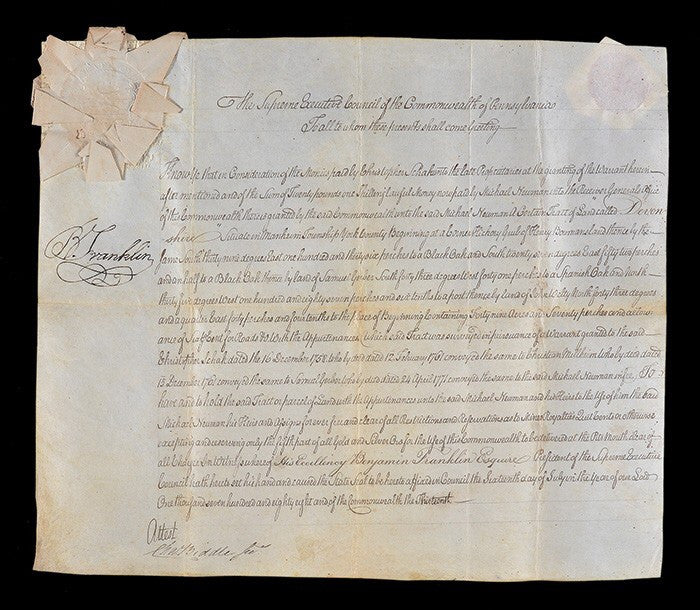 The Supreme Executive Council of the Commonwealth of Pennsylvania
To all to whom these presents shall come Greeting
Know Ye that in Consideration of the Monies paid by Christopher Schak unto the late Proprietaries at the granting of the Warrant herein
after mentioned and of the Sum of Twenty pounds one Shilling lawful Money now paid by Michael Neuman into the Receiver Generals Office
of the Commonwealth there is granted by the said Commonwealth unto the said Michael Neuman A Certain Tract of Land called Devon
shire Situate in Manheim Township York County Beginning at a Corner Hickory of Henry Bowmans Land thence by the
same South thirty nine degrees East one hundred and thirty six perches to a Black Oak and South twenty seven degrees East fifty two perches
and an half to a Black Oak thence by land of Samuel Gerber South forty three degrees West forty one perches to a Spanish Oak and North
thirty five degrees West one hundred and eighty seven perches and six tenths to a post thence by Land of North forty three degrees
and a quarter East forty perches and four tenths to the Place of Beginning Containing Forty nine Acres and Seventy perches and allow
ance of Six Cent for Roads &c With the Appurtenances which said Tract was surveyed in pursuance of a Warrant granted to the said
Christopher Schak dated the 16 December 1758 who by deed dated 12 February 1761 conveyed the same to Christian who by deed dated
December 1767 conveyed the same to Samuel Gerber who by deed dated 24 April 1771 conveyed the same to the said Michael Neuman in fee, To
have and to hold the said Tract or parcel of Land with the Appurtenances unto the said Michael Neuman and his Heirs to the Use of him the said
Michael Neuman his Heirs and Assigns forever free and clear of all Restrictions and Reservations as to Mines Royalties Quit Rents or otherwise
excepting and reserving only the fifth part of all Gold and Silver Ore for the Use of this Commonwealth to be delivered at the Pits Mouth clear of
all Charges In Witness whereof His Excellency Benjamin Franklin Esquire President of the Supreme Executive
Council hath hereto set his hand and caused the State Seal to be hereto affixed in Council the Sixteenth day of July in the Year of our Lord
One thousand seven hundred and eighty eight and of the Commonwealth the Thirteenth
B. Franklin
Attest
Chas Biddle Secy